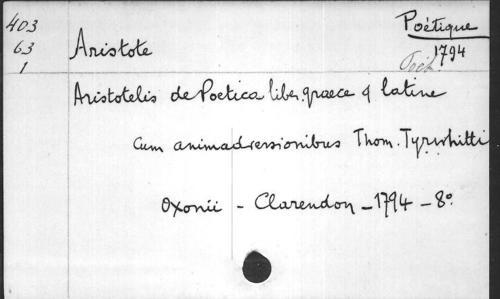 403
63
1
Poétique
1794
Aristote
Aristotelis de Poetica liber. graece & latine
Cum animadversionibus Thom. Tyrwhitti
Oxonii – Clarendon – 1794 – 8º.